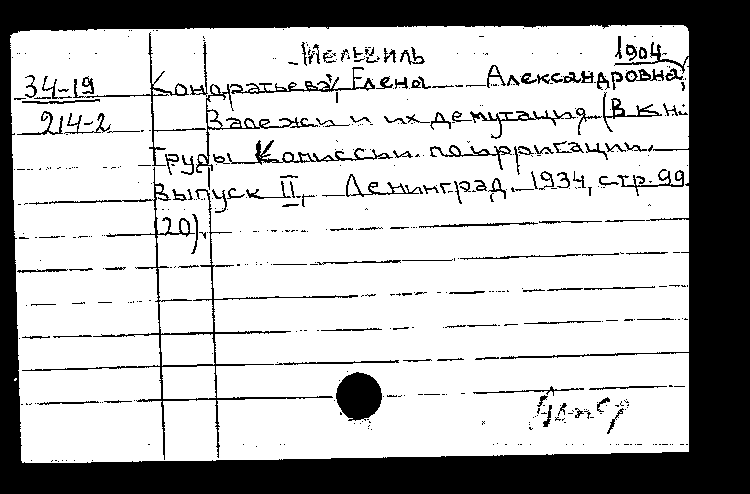 Мельвиль 1904
34-19 Кондратьева, Елена Александровна,
214-2 Залежи и их демутация (В кн.:
Труды Комиссии по ирригации.
Выпуск II, Ленинград. 1934, стр. 99
(20).